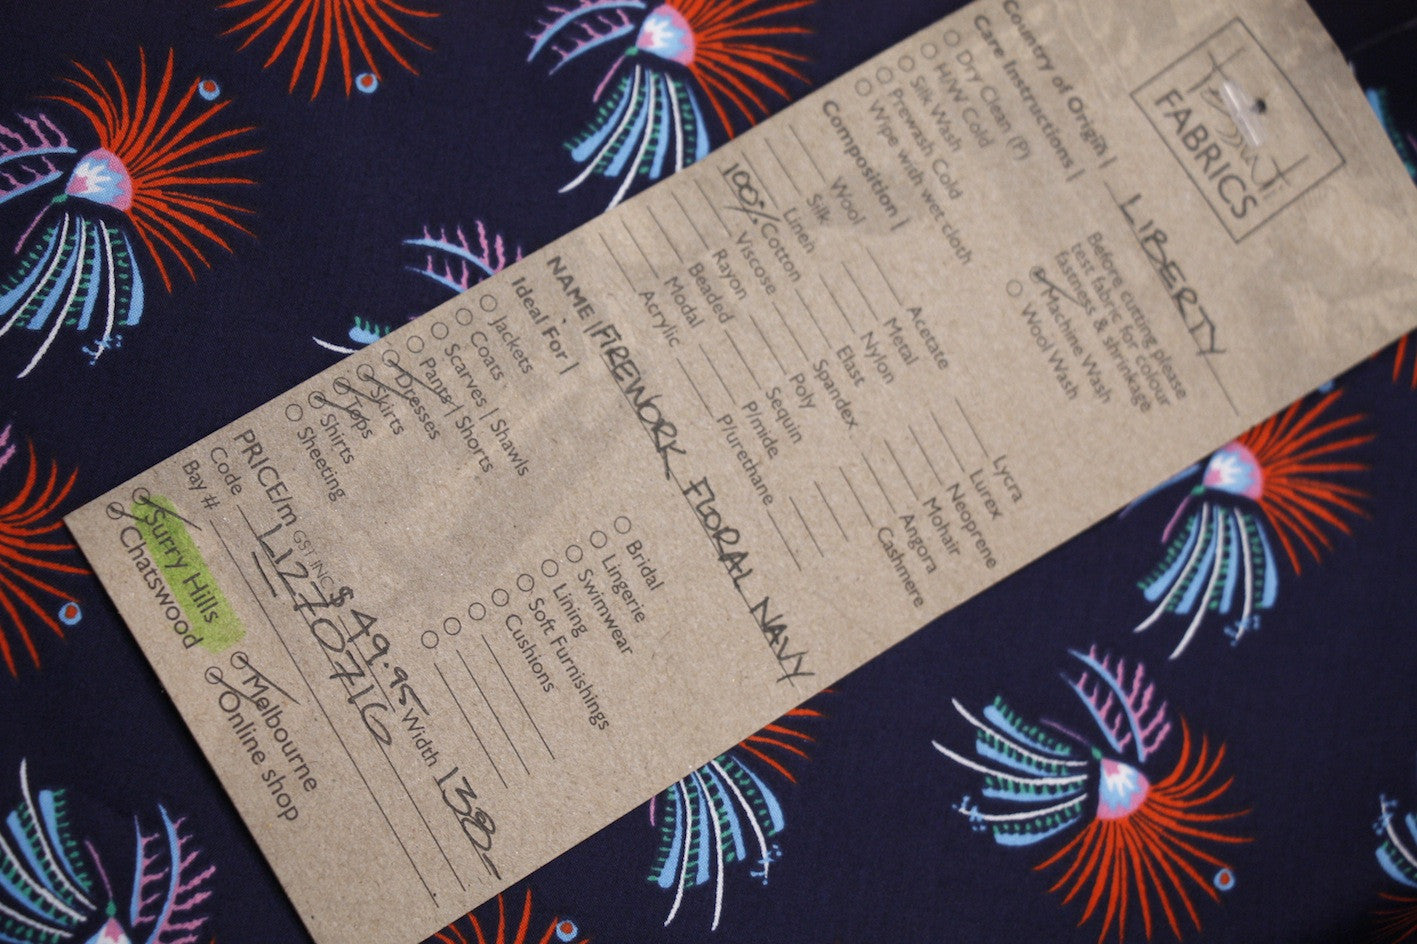 Tessuti
FABRICS
Country of Origin | LIBERTY
Care Instructions |
Dry Clean (P)
H/W Cold
Silk Wash
Prewash Cold
Wipe with wet cloth
Before cutting please
test fabric for colour
fastness & shrinkage
Machine Wash
Wool Wash
Composition |
Wool
Silk
Linen
100% Cotton
Viscose
Rayon
Beaded
Modal
Acrylic
Acetate
Metal
Nylon
Elast
Spandex
Poly
Sequin
P/mide
P/urethane
Lycra
Lurex
Neoprene
Mohair
Angora
Cashmere
NAME | FIREWORK FLORAL NAVY
Ideal For |
Jackets
Coats
Scarves | Shawls
Pants | Shorts
Dresses
Skirts
Tops
Shirts
Sheeting
Bridal
Lingerie
Swimwear
Lining
Soft Furnishings
Cushions
PRICE/m GST INC $49.95 Width 138
Code L1270716
Bay #
Surry Hills
Chatswood
Melbourne
Online shop